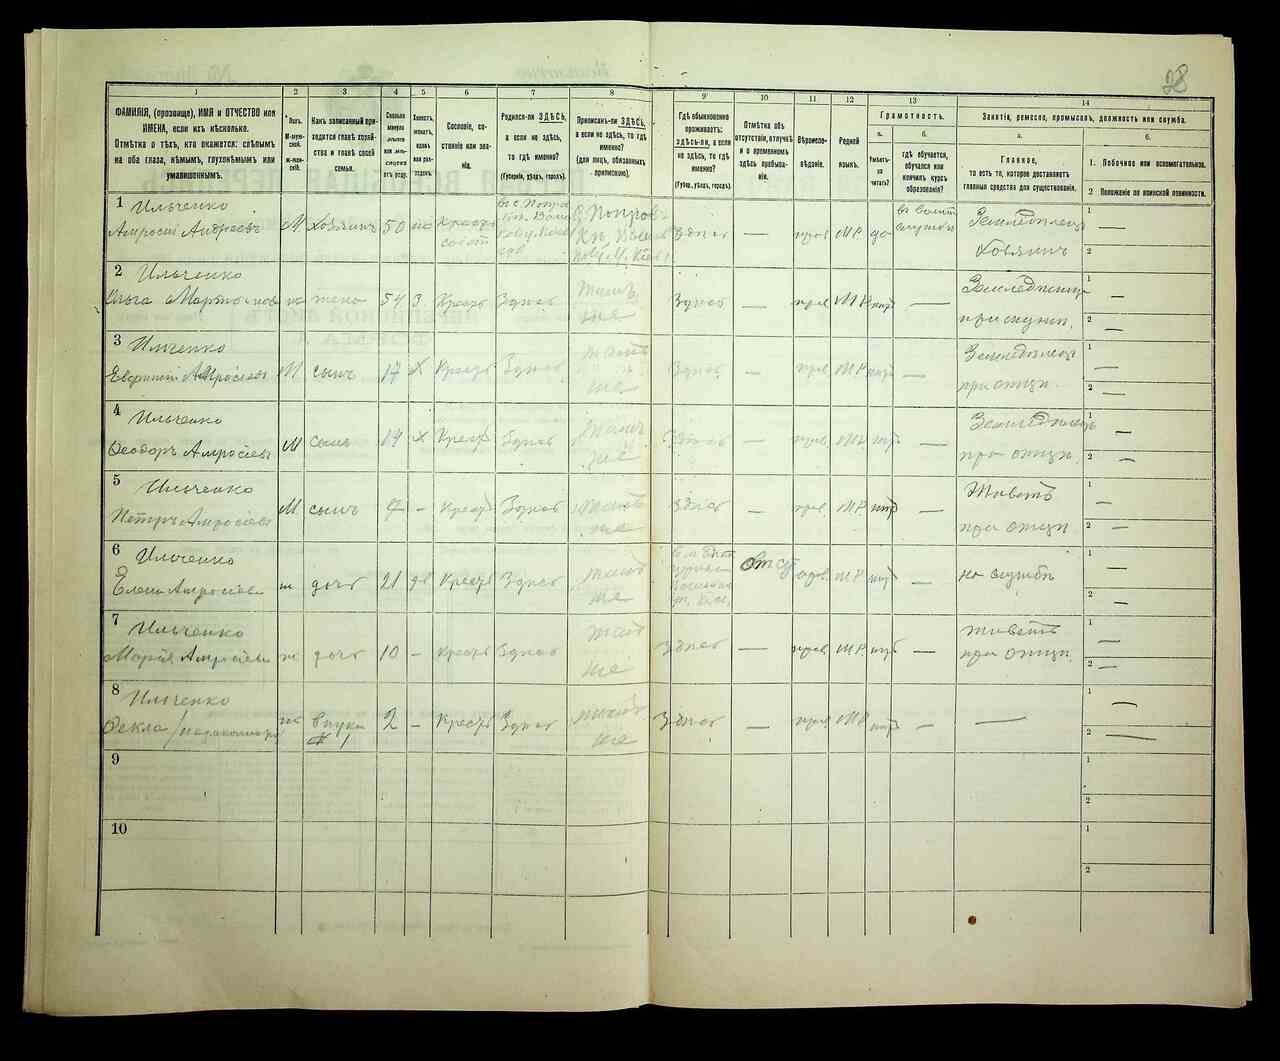 28
1
2
3
4
5
6
7
8
9
10
11
12
13
14
ФАМИЛІЯ, (прозвище), ИМЯ и ОТЧЕСТВО или
ИМЕНА, если ихъ нѣсколько.
Отмѣтка о тѣхъ, кто окажется: слѣпымъ
на оба глаза, нѣмымъ, глухонѣмымъ или
умалишеннымъ.
Полъ.
М-мужской.
ж-женскій.
Какъ записанный приходится
главѣ хозяйства
и главѣ своей
семьи.
Сколько
минуло
лѣтъ
или мѣсяцевъ
отъ роду.
Холостъ,
женатъ,
вдовъ
или разведенъ.
Сословіе, состояніе
или званіе.
Родился-ли ЗДѢСЬ,
а если не здѣсь,
то гдѣ именно?
(Губернія, уѣздъ, городъ).
Приписанъ-ли ЗДѢСЬ,
а если не здѣсь, то гдѣ
именно?
(для лицъ, обязанныхъ
припискою).
Гдѣ обыкновенно
проживаетъ:
здѣсь-ли, а если
не здѣсь, то гдѣ
именно?
(Губер., уѣздъ, городъ).
Отмѣтка объ
отсутствіи, отлучкѣ
и о временномъ
здѣсь пребываніи.
Вѣроисповѣданіе.
Родной
языкъ.
Грамотность.
а.
Умѣетъ-ли
читать?
б.
гдѣ обучается,
обучался или
кончилъ курсъ
образованія?
Занятія, ремесло, промыселъ, должность или служба.
а.
Главное,
то есть то, которое доставляетъ
главныя средства для существованія.
б.
1. Побочное или вспомогательное.
2 Положеніе по воинской повинности.
1
Ильченко
Амросій Андреевъ М Хозяинъ 50 Здѣсь — прав МР да
Земледѣлецъ
Хозяинъ
1 —
2
2
Ильченко
Ольга жена 54 З Крестъ Здѣсь тамъ же Здѣсь — прав МР нѣтъ —
1 —
2 —
3
Ильченко
М сынъ 17 Х Крестъ Здѣсь тамъ же Здѣсь — прав МР нѣтъ —
Земледѣлецъ
при отцѣ
1 —
2 —
4
Ильченко
Феодоръ Амросіевъ М сынъ 19 Х Крест Здѣсь тамъ же Здѣсь — прав МР нѣтъ —
Земледѣлецъ
при отцѣ
1 —
2 —
5
Ильченко
Петръ Амросіевъ М сынъ — Крестъ Здѣсь тамъ же Здѣсь — прав МР нѣтъ —
Живетъ
при отцѣ
1 —
2 —
6
Ильченко
Елена Амросіева ж дочь 21 дв Крестъ Здѣсь тамъ же отсут прав МР нѣтъ —
на службѣ
1 —
2 —
7
Ильченко
Марія Амросіева ж дочь 10 — Крестъ Здѣсь тамъ же Здѣсь — прав МР нѣтъ —
Живетъ
при отцѣ
1 —
2 —
8
Ильченко
Фекла внука 2 — Крестъ Здѣсь тамъ же Здѣсь — прав МР нѣтъ — —
1 —
2 —
9
1
2
10
1
2